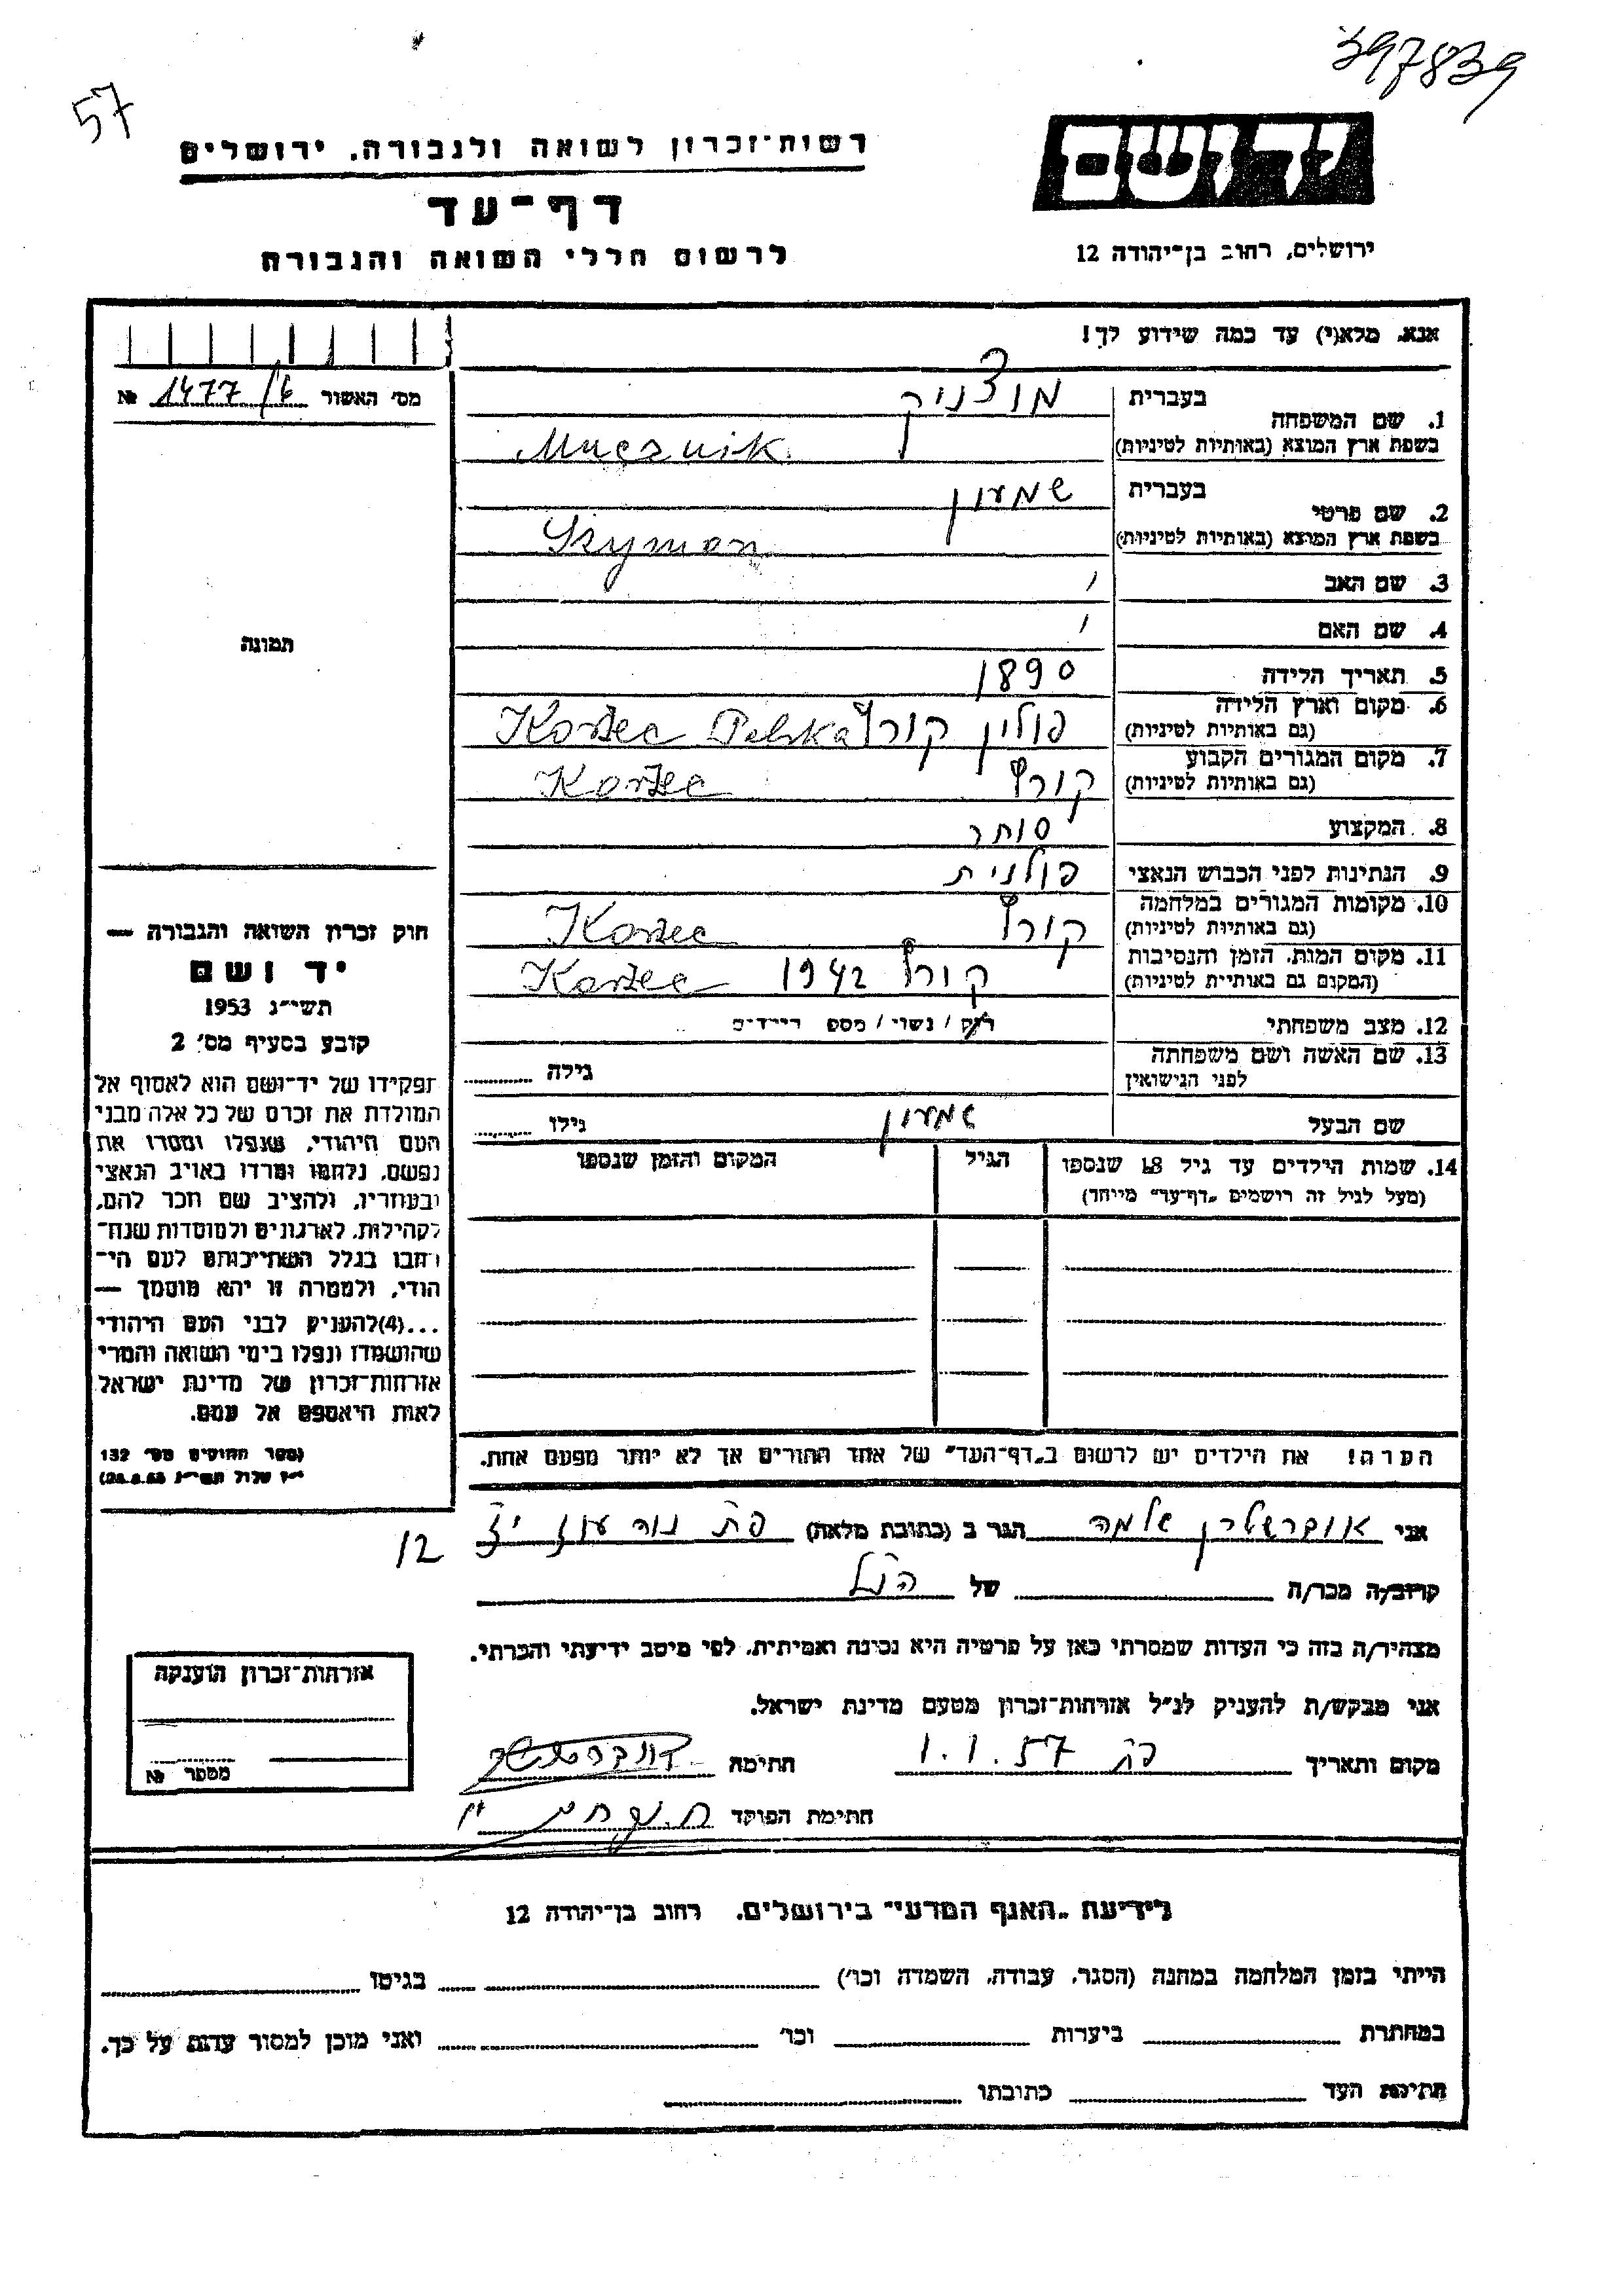 397839
57
יד ושם
רשות־זכרון לשואה ולגבורה. ירושלים
דף־עד
לרשום חללי השואה והגבורה
ירושלים, רחוב בן־יהודה 12
אנא, מלא(י) עד כמה שידוע לך!
מס׳ האשור 1477/6 №
1. שם המשפחה בעברית מוצ׳ניק
בשפת ארץ המוצא (באותיות לטיניות) Mucznik
2. שם פרטי בעברית שמעון
בשפת ארץ המוצא (באותיות לטיניות) Szymon
3. שם האב
4. שם האם
תמונה
5. תאריך הלידה 1890
6. מקום וארץ הלידה (גם באותיות לטיניות) פולין קורץ Korzec Polska
7. מקום המגורים הקבוע (גם באותיות לטיניות) קורץ Korzec
8. המקצוע סוחר
9. הנתינות לפני הכבוש הנאצי פולנית
10. מקומות המגורים במלחמה (גם באותיות לטיניות) קורץ Korzec
11. מקום המות, הזמן והנסיבות (המקום גם באותיות לטיניות) קורץ 1942 Korzec
12. מצב משפחתי רוק / נשוי / מספ ריידים
13. שם האשה ושם משפחתה לפני הנישואין גילה
שם הבעל שמעון גילו
14. שמות הילדים עד גיל 18 שנספו הגיל המקום והזמן שנספו
(מעל לגיל זה רושמים „דף־עד״ מיוחד)
חוק זכרון השואה והגבורה —
יד ושם
תשי״ג 1953
קובע בסעיף מס׳ 2
תפקידו של יד־ושם הוא לאסוף אל
המולדת את זכרם של כל אלה מבני
העם היהודי, שנפלו ומסרו את
נפשם, נלחמו ומרדו באויב הנאצי
ובעוזריו, ולהציב שם וזכר להם,
לקהילות, לארגונים ולמוסדות שנח־
רבו בגלל השתייכותם לעם הי־
הודי, ולמטרה זו יהא מוסמך —
...(4)להעניק לבני העם היהודי
שהושמדו ונפלו בימי השואה והמרי
אזרחות־זכרון של מדינת ישראל
לאות היאספם אל עמם.
(ספר החוקים מס׳ 132
הערה! את הילדים יש לרשום ב„דף־העד״ של אחד ההורים אך לא יותר מפעם אחת.
אני אוברשטרן שלמה הגר ב (כתובת מלאה) פת נורדוי יצ
12
קרוב/ה מכר/ה של הנ״ל
מצהיר/ה בזה כי העדות שמסרתי כאן על פרטיה היא נכונה ואמיתית, לפי מיטב ידיעתי והכרתי.
אני מבקש/ת להעניק לנ״ל אזרחות־זכרון מטעם מדינת ישראל.
מקום ותאריך פת 1.1.57 חתימה
חתימת הפוקד
אזרחות־זכרון הוענקה
מספר №
לידיעת „האגף המדעי״ בירושלים. רחוב בן־יהודה 12
הייתי בזמן המלחמה במחנה (הסגר, עבודה, השמדה וכו׳) בגיטו
במחתרת ביערות וכו׳ ואני מוכן למסור עדות על כך.
חתימת העד כתובתו